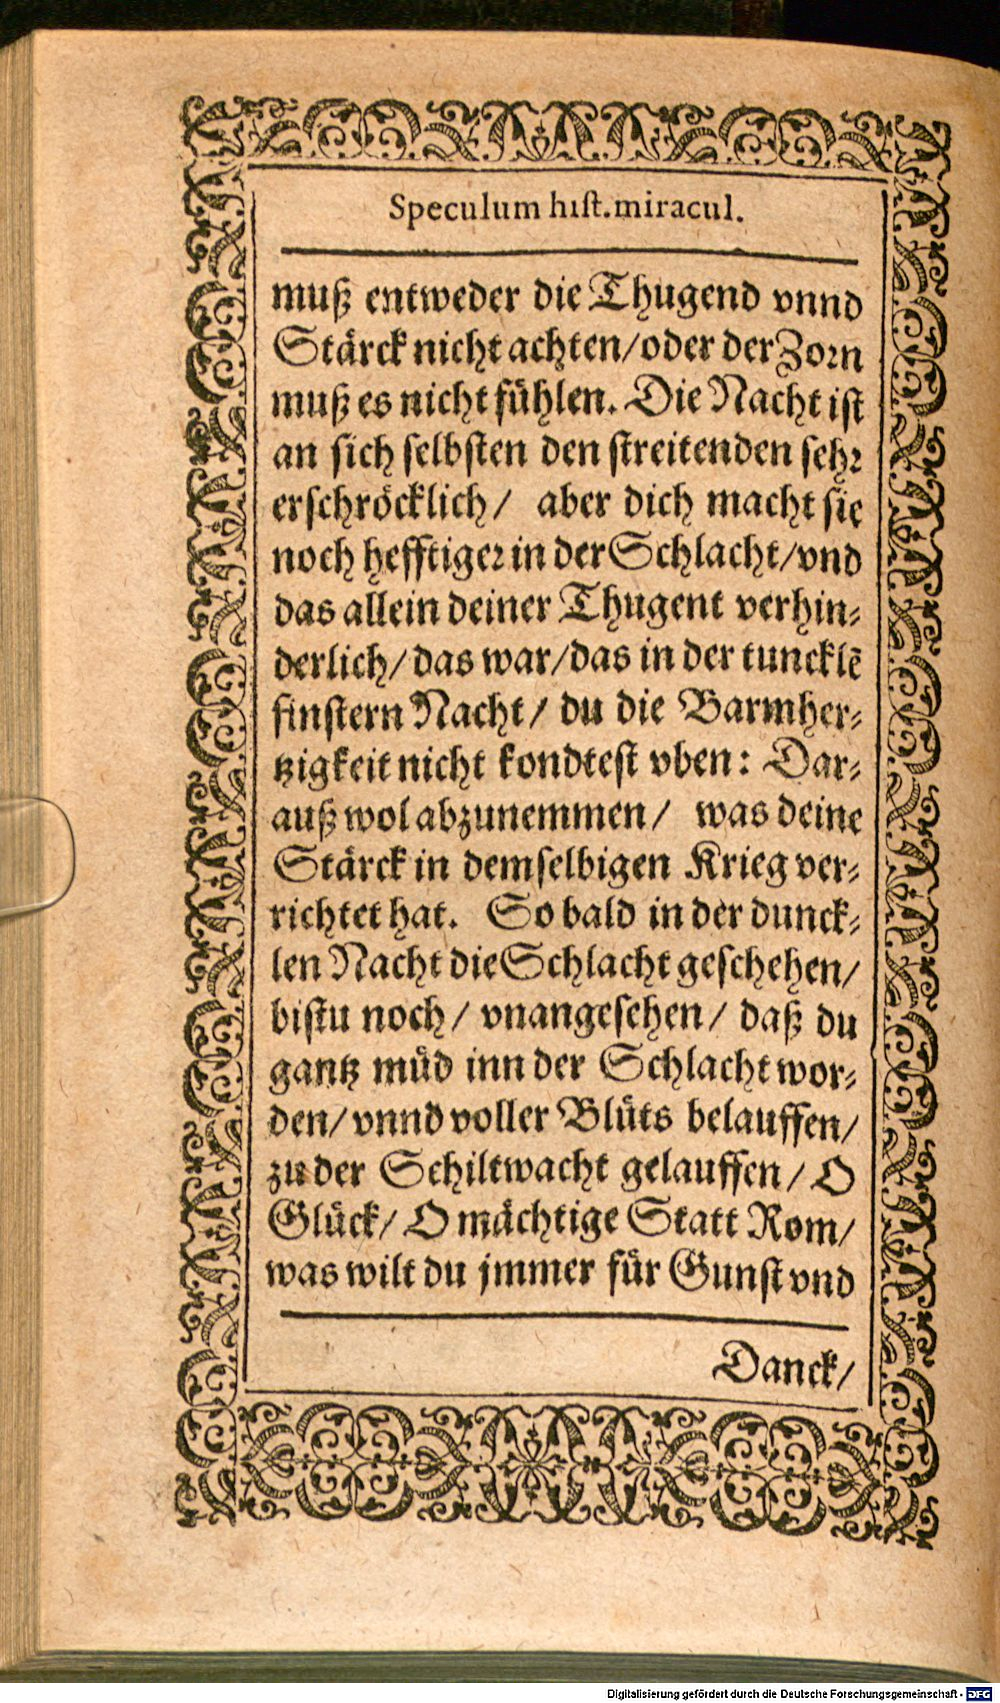 Speculum hist.miracul.
muß entweder die Thugend vnnd
Stärck nicht achten/oder der Zorn
muß es nicht fühlen. Die Nacht ist
an sich selbsten den streitenden sehr
erschröcklich/ aber dich macht sie
noch hefftiger in der Schlacht/vnd
das allein deiner Thugent verhin⸗
derlich/das war/das in der tuncklē
finstern Nacht/ du die Barmher⸗
tzigkeit nicht kondtest vben: Dar⸗
auß wol abzunemmen/ was deine
Stärck in demselbigen Krieg ver⸗
richtet hat. So bald in der dunck⸗
len Nacht die Schlacht geschehen/
bistu noch/ vnangesehen/ daß du
gantz müd inn der Schlacht wor⸗
den/ vnnd voller Blüts belauffen/
zu der Schiltwacht gelauffen/ O
Glück/ O mächtige Statt Rom/
was wilt du jmmer für Gunst vnd
Danck/
Digitalisierung gefördert durch die Deutsche Forschungsgemeinschaft - DFG